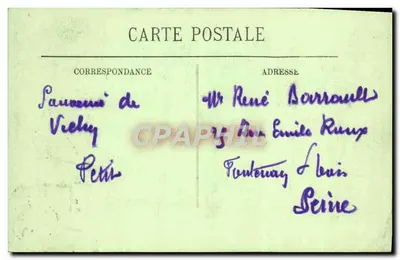 CARTE POSTALE
CORRESPONDANCE
ADRESSE
Souvenir de
Vichy
Petit
Mr René Barrault
75 Rue Emile Roux
Fontenay s/ bois
Seine
CPARAMA